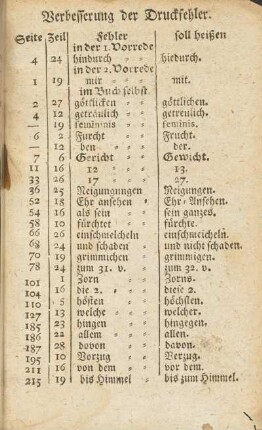 Verbesserung der Druckfehler.
Seite Zeil Fehler soll heißen
in der 1. Vorrede
4 24 hindurch " " hiedurch.
in der 2. Vorrede
1 19 mir " " mit.
im Buch selbst.
2 27 göttlicken " " göttlichen.
4 12 geträulich " " getreulich.
— 19 feminīnis " " feminis.
6 2 Furcht " " Frucht.
— 12 den " " der.
7 6 Gericht " " Gewicht.
11 16 12 " " 13.
33 26 17 " " 27.
36 25 Neigungungen " Neigungen.
52 18 Ehr ansehen " Ehr-Ansehen.
54 16 als sein " " sein ganzes.
58 10 fürchtet " " fürchte.
66 22 einschmelcheln " einschmeicheln.
68 24 und schaden " und nicht schaden.
70 19 grimmichen " grimmigen.
78 24 zum 31. v. " zum 32. v.
101 1 Zorn " " Zorns.
104 16 die 2. " " diese 2.
110 5 hösten " " höchsten.
127 13 welche " " welcher.
185 23 hingen " " hingegen.
186 22 allem " " allen.
187 28 dovon " " davon.
195 10 Vorzug " " Verzug.
211 16 von dem " " vor dem.
215 19 bis Himmel " bis zum Himmel.